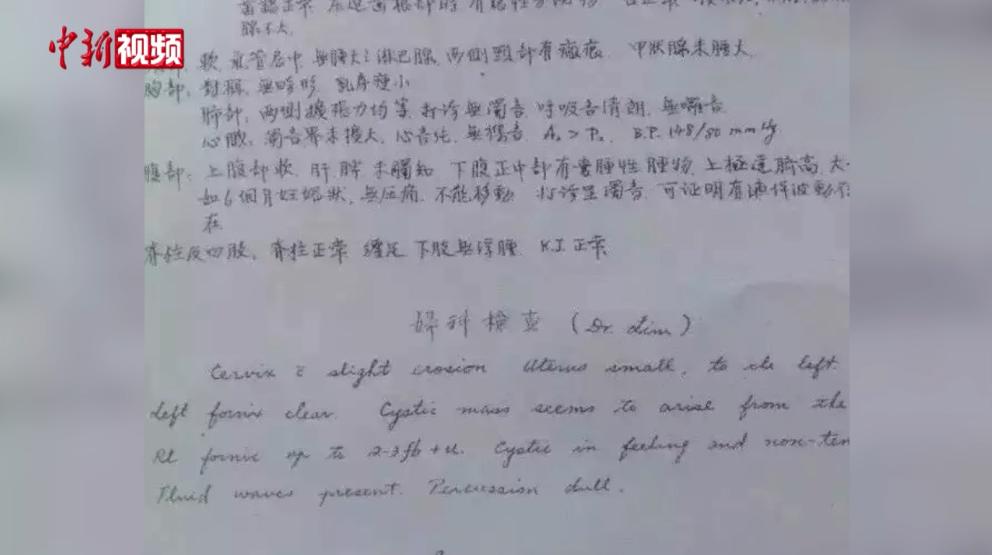 中新视频
腺不大
軟 氣管居中 無腫大之淋巴腺 两側頸部有瘢痕 甲狀腺未腫大
胸部: 對稱, 無畸形 乳房
肺部, 两側擴張力均等 打诊無濁音 呼吸音清朗, 無囉音
心臟, 濁音界未擴大, 心音纯, 無襍音 A₂ > P₂ B.P. 148/80 mmHg
腹部: 上腹部軟 肝脾未觸知 下腹正中部有囊腫性腫物, 上極達臍高, 大
如6個月妊娠狀, 無压痛. 不能移動 打诊呈濁音, 可证明有液体波動
在
脊柱及四肢, 脊柱正常 纏足 下肢無浮腫 K.J 正常
婦科檢查 (Dr. Lim)
Cervix c̄ slight erosion Uterus small, to the left.
Left fornix clear. Cystic mass seems to arise from the
Rt fornix up to 2-3fb + U. Cystic in feeling and non-ten
Fluid waves present. Percussion dull.